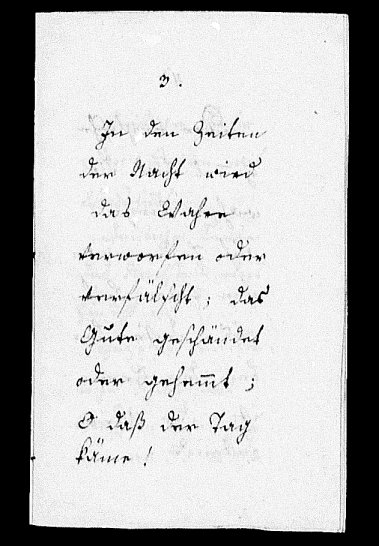 3.
In den Zeiten
der Nacht wird
das Wahre
verworfen oder
verfälscht; das
Gute geschändet
oder gehemmt;
O daß der Tag
käme!